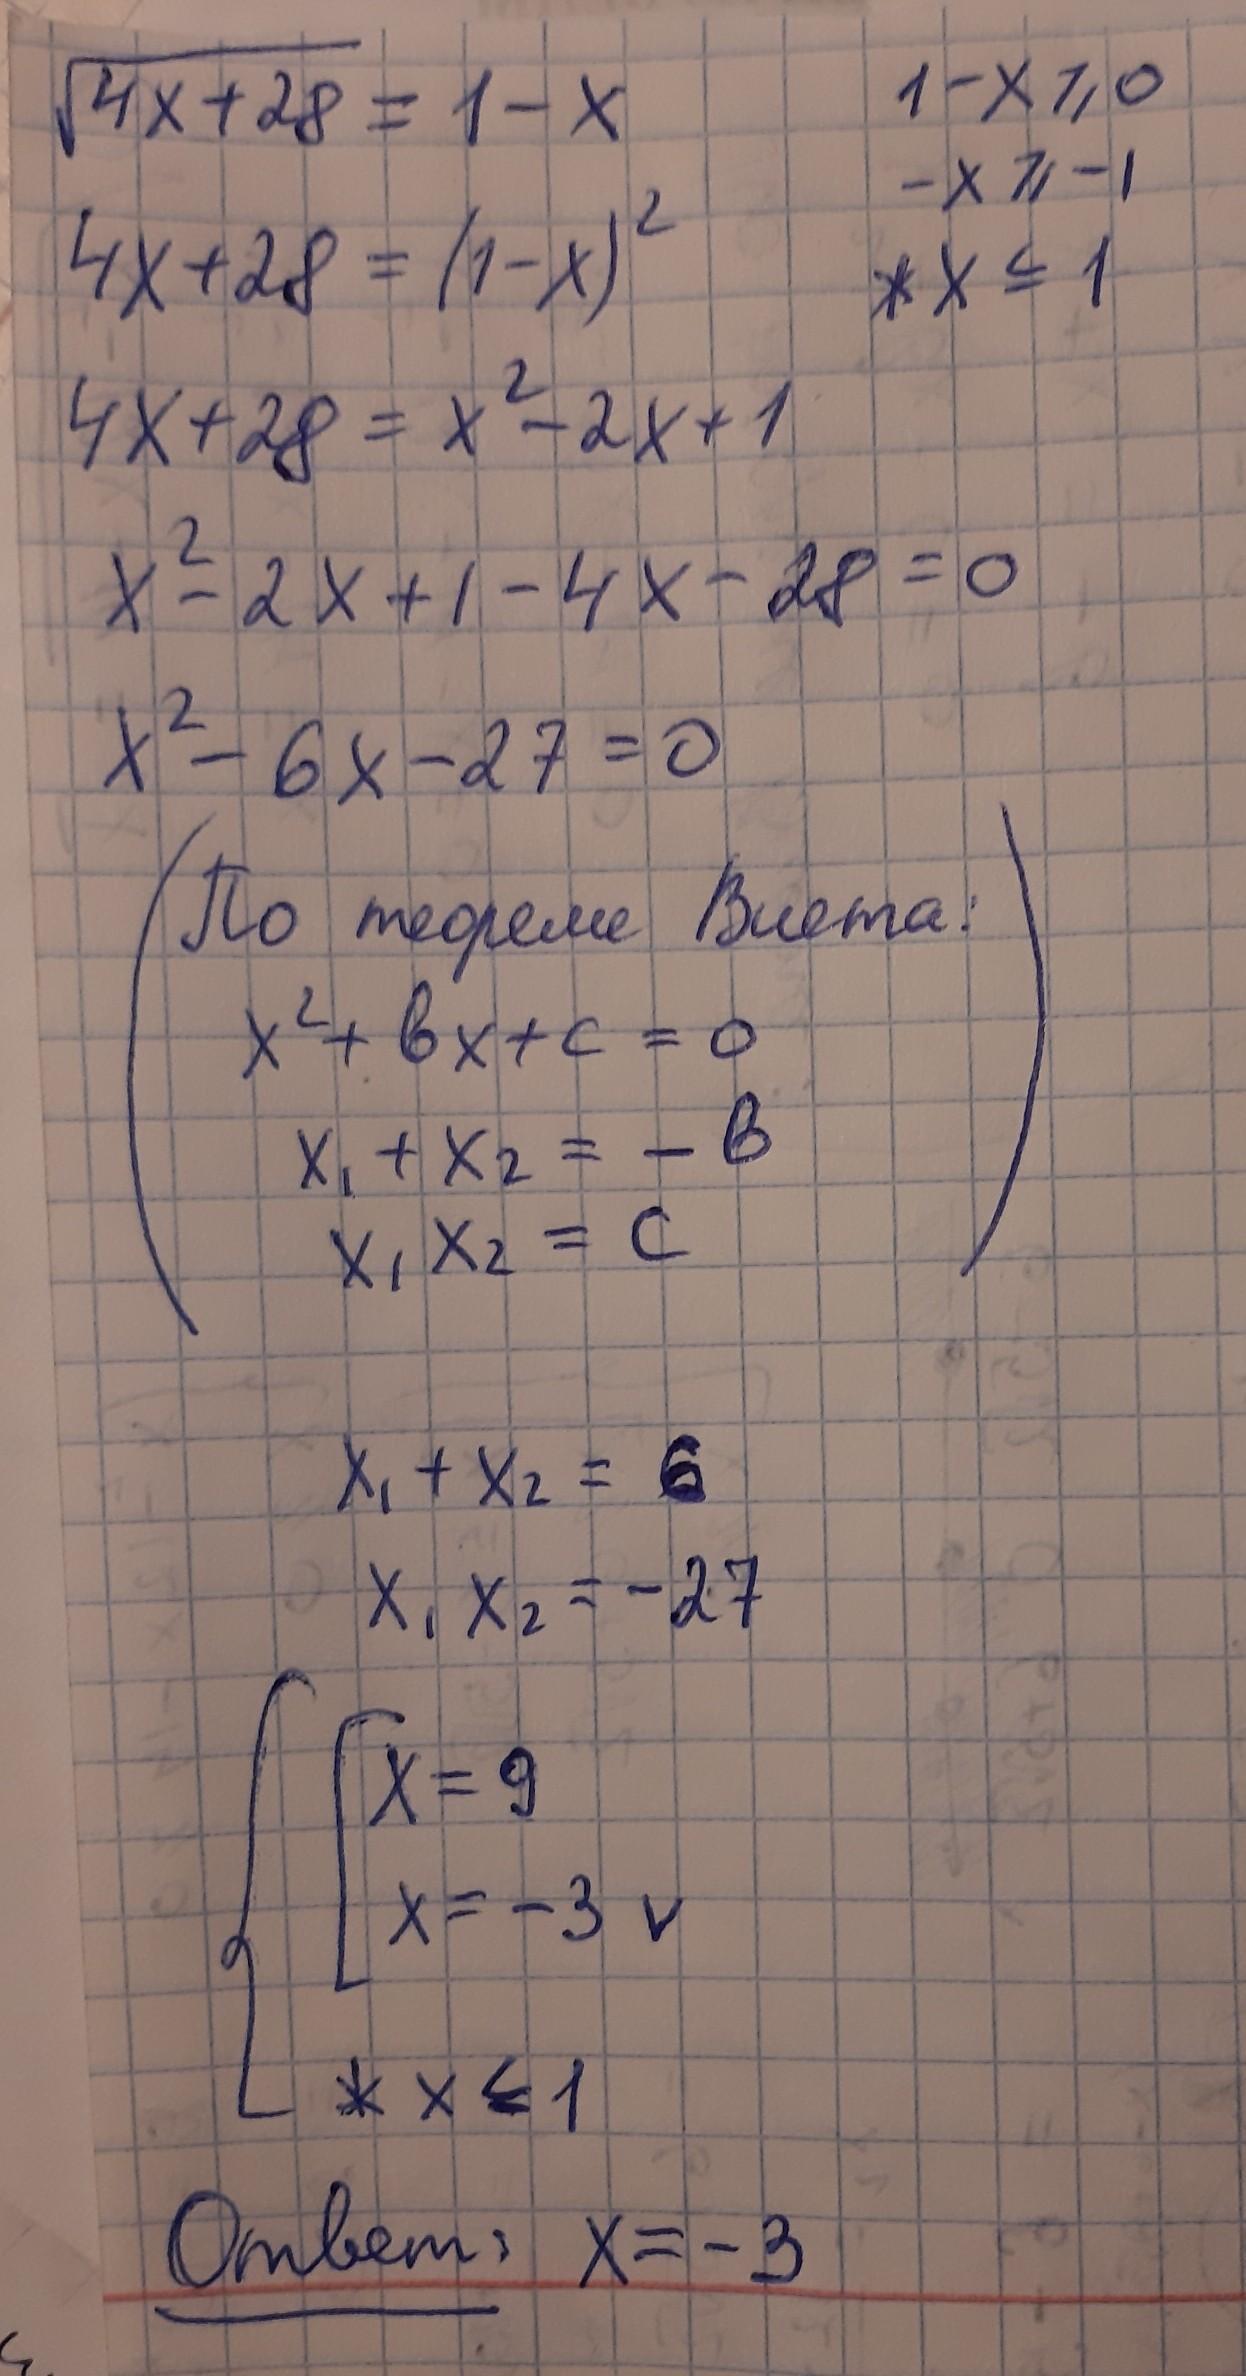 √4x+28 = 1-x
1-x ⩾ 0
-x ⩾ -1
* x ≤ 1
4x+28 = (1-x)²
4x+28 = x²-2x+1
x²-2x+1-4x-28=0
x²-6x-27=0
(По теореме Виета:
x²+вx+c=0
x₁+x₂=-в
x₁x₂=c)
x₁+x₂=6
x₁x₂=-27
x=9
x=-3 v
* x ≤ 1
Ответ: x=-3